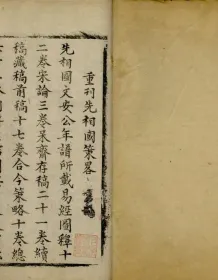 重刊先相國策畧
先相國文安公年譜所載易經圖釋十
二卷宋論三卷呆齋存稿二十一卷續
稿藏稿前稿十七卷合今策略十卷總